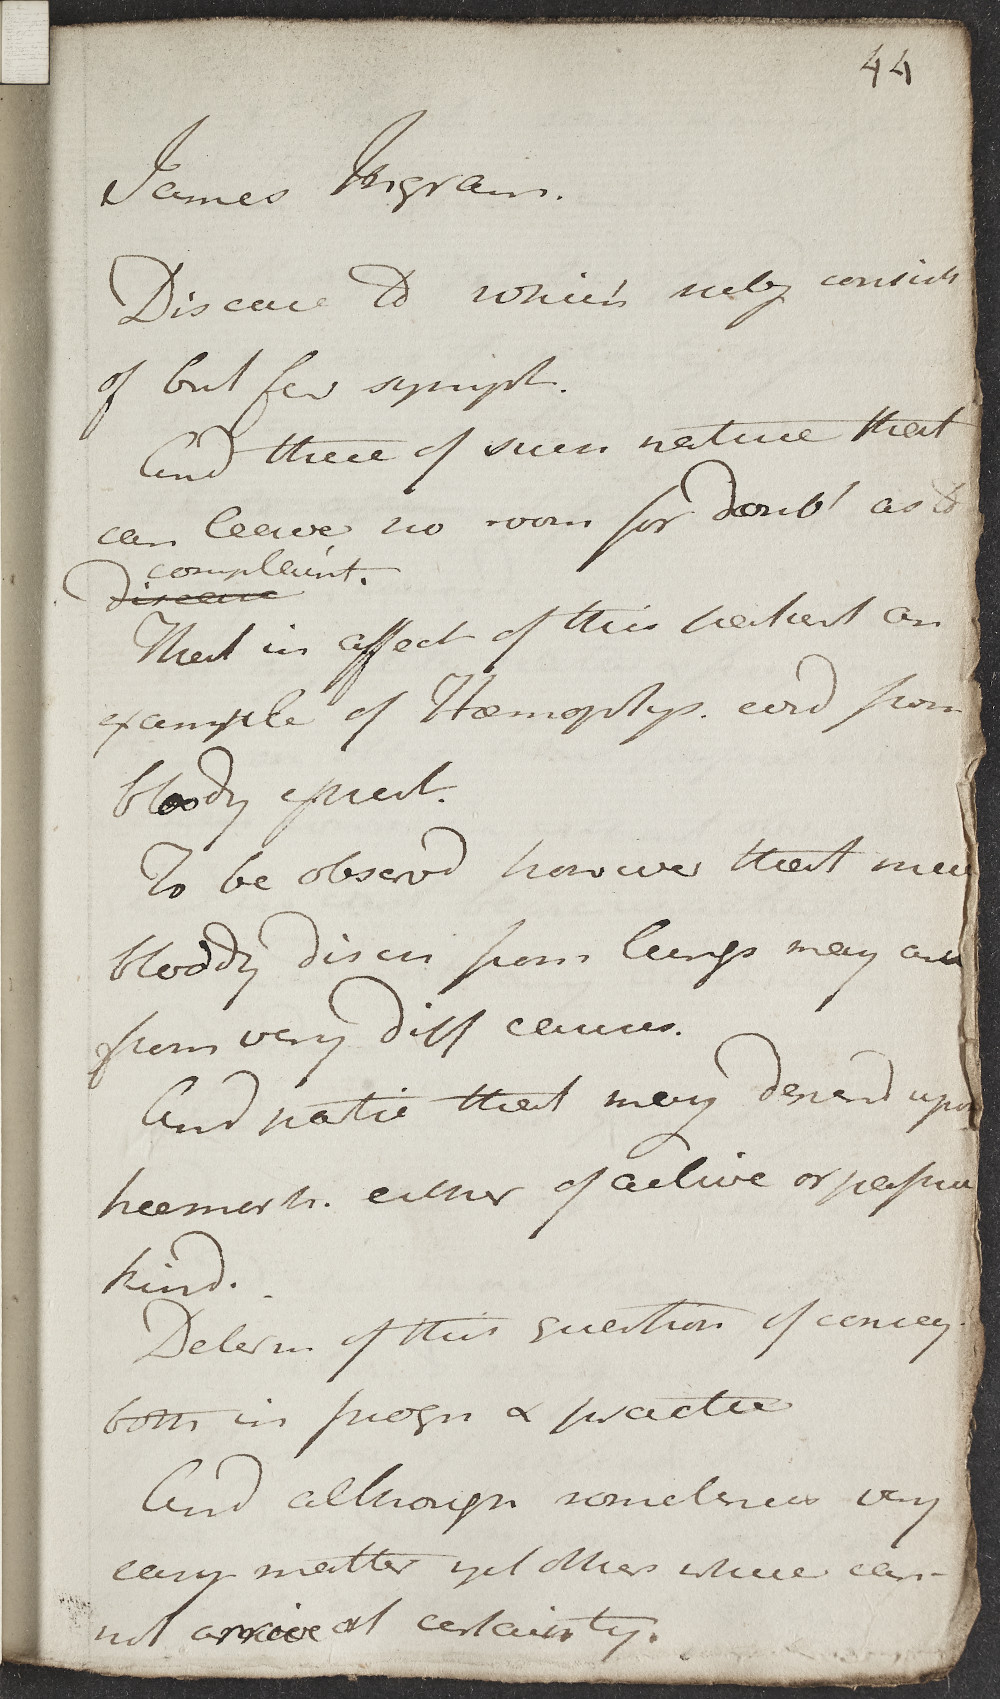 44
James Ingram.
Disease to which subj consists
of but few sympt.
And these of such nature that
can leave no room for doubt as to
complaint.
disease
That in affect of this patient an
example of Hæmoptys. evid from
bloody expect.
To be observd however that mere
bloody disch from lungs may arise
from very diff causes.
And patic that may depend upon
heemorh. either of active or passive
kind.
Determ of this question of conseq.
both in progn & practice
And although sometimes very
easy matter yet others where can-
not arrive at certainty.